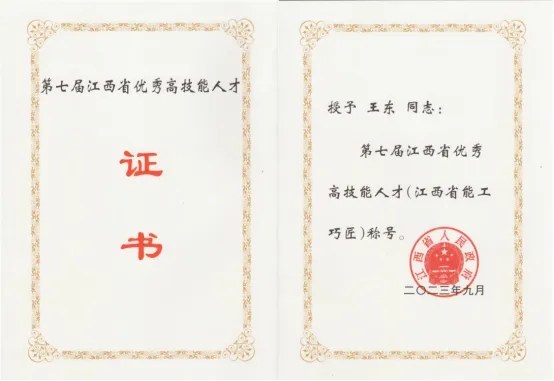 第七届江西省优秀高技能人才
证
书
授予 王东 同志：
第七届江西省优秀
高技能人才(江西省能工
巧匠)称号。
江西省人民政府
二〇二三年九月